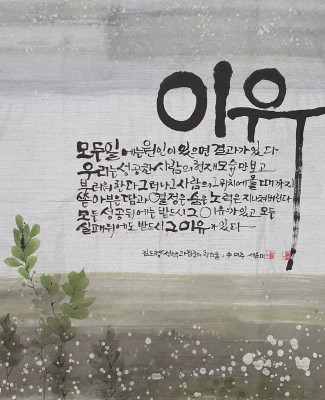 이유
모두 일에는 원인이 있으면 결과가 있다
우리는 성공한 사람의 현재 모습만 보고
부러워한다 그러나 그 사람의 그 위치에 올 때까지
쏟아부은 땀과 열정 은 노력은 지나쳐버린다
모든 성공 뒤에는 반드시 그 이유가 있고 모든
실패 뒤에도 반드시 그 이유가 있다